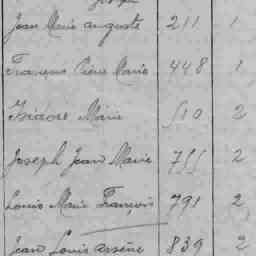 Joseph
Jean Marie auguste 211 1
François Pierre Marie 448 1
Isidore Marie 510 2
Joseph Jean Marie 755 2
Louis Marie François 791 2
Jean Louis arsène 839 2